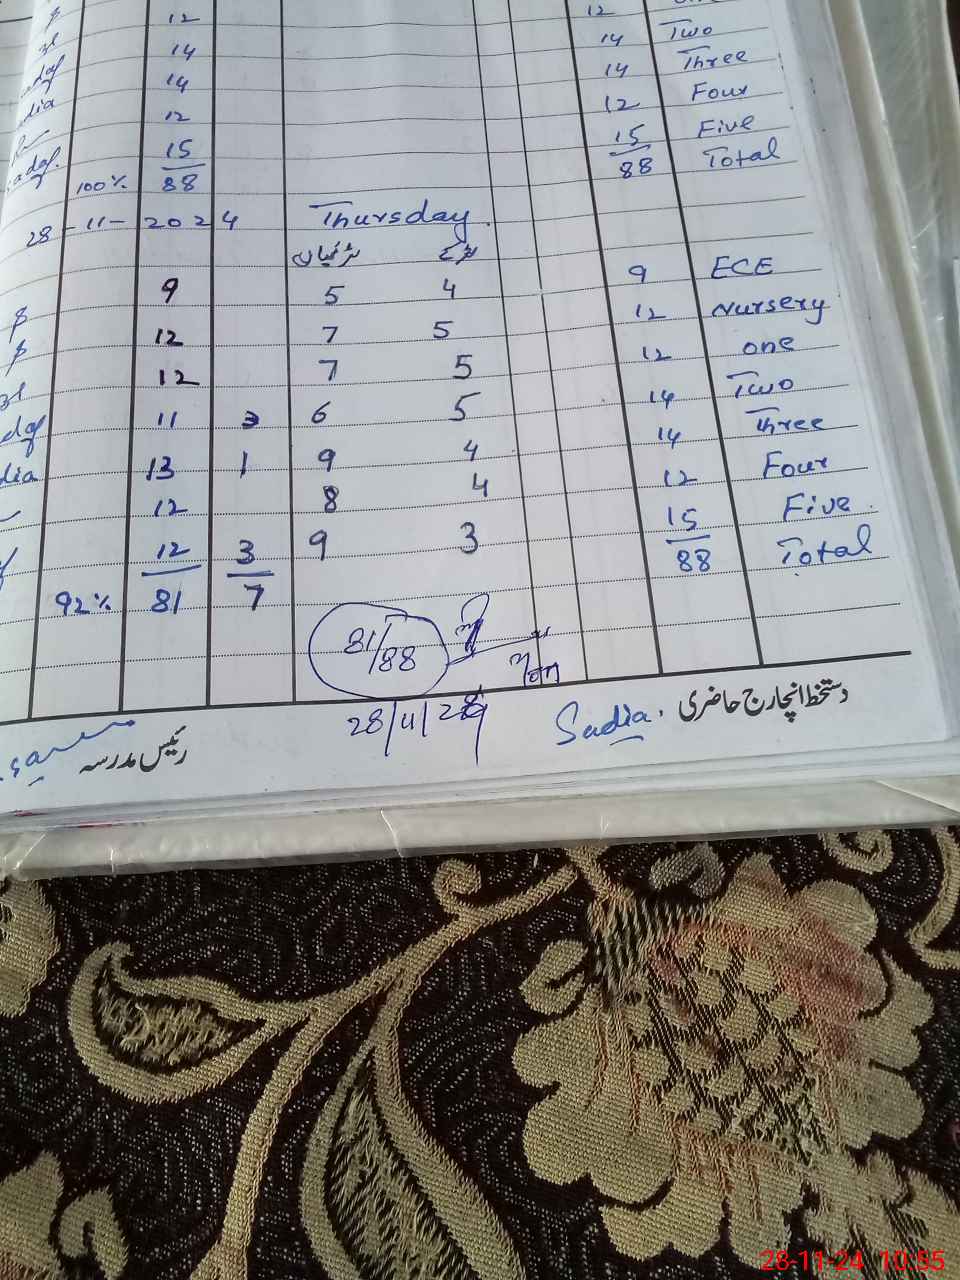 12 12
14 14 Two
14 14 Three
12 12 Four
15 15 Five
100% 88 88 Total
28-11-2024 Thursday.
لڑکیاں لڑکے
9 5 4 9 ECE
12 7 5 12 Nursery
12 7 5 12 one
11 3 6 5 14 Two
13 1 9 4 14 Three
12 8 4 12 Four
12 3 9 3 15 Five.
92% 81 7 88 Total
81/88
28/11/28
Sadia. دستخط انچارج حاضری
رئیس مدرسہ
28-11-24 10:55